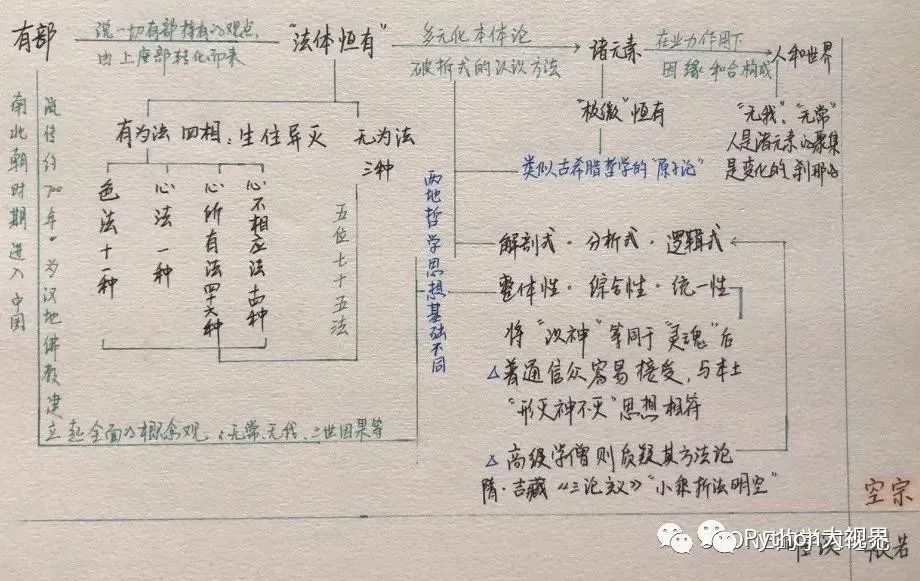 有部
说一切有部持有的观点,
由上座部转化而来
"法体恒有"
多元化本体论
破析式的认识方法
诸元素
在业力作用下
因缘和合构成
人和世界
"极微"恒有
"无我"、"无常"
人是诸元素的聚集
是变化的刹那
类似古希腊哲学的"原子论"
有为法 四相:生住异灭
无为法
三种
色法十一种
心法一种
心所有法四十六种
心不相应法十四种
五位七十五法
南北朝时期进入中国
流传约700年。为汉地佛教建
立起全面的概念观、无常、无我、三世因果等
两地哲学思想基础不同
解剖式·分析式·逻辑式
整体性·综合性·统一性
将"识神"等同于"灵魂"后
△普通信众容易接受,与本土
"形灭神不灭"思想相符
△高级学僧则质疑其方法论
隋·吉藏《三论玄义》"小乘析法明空"
空宗
般若
Python大视界